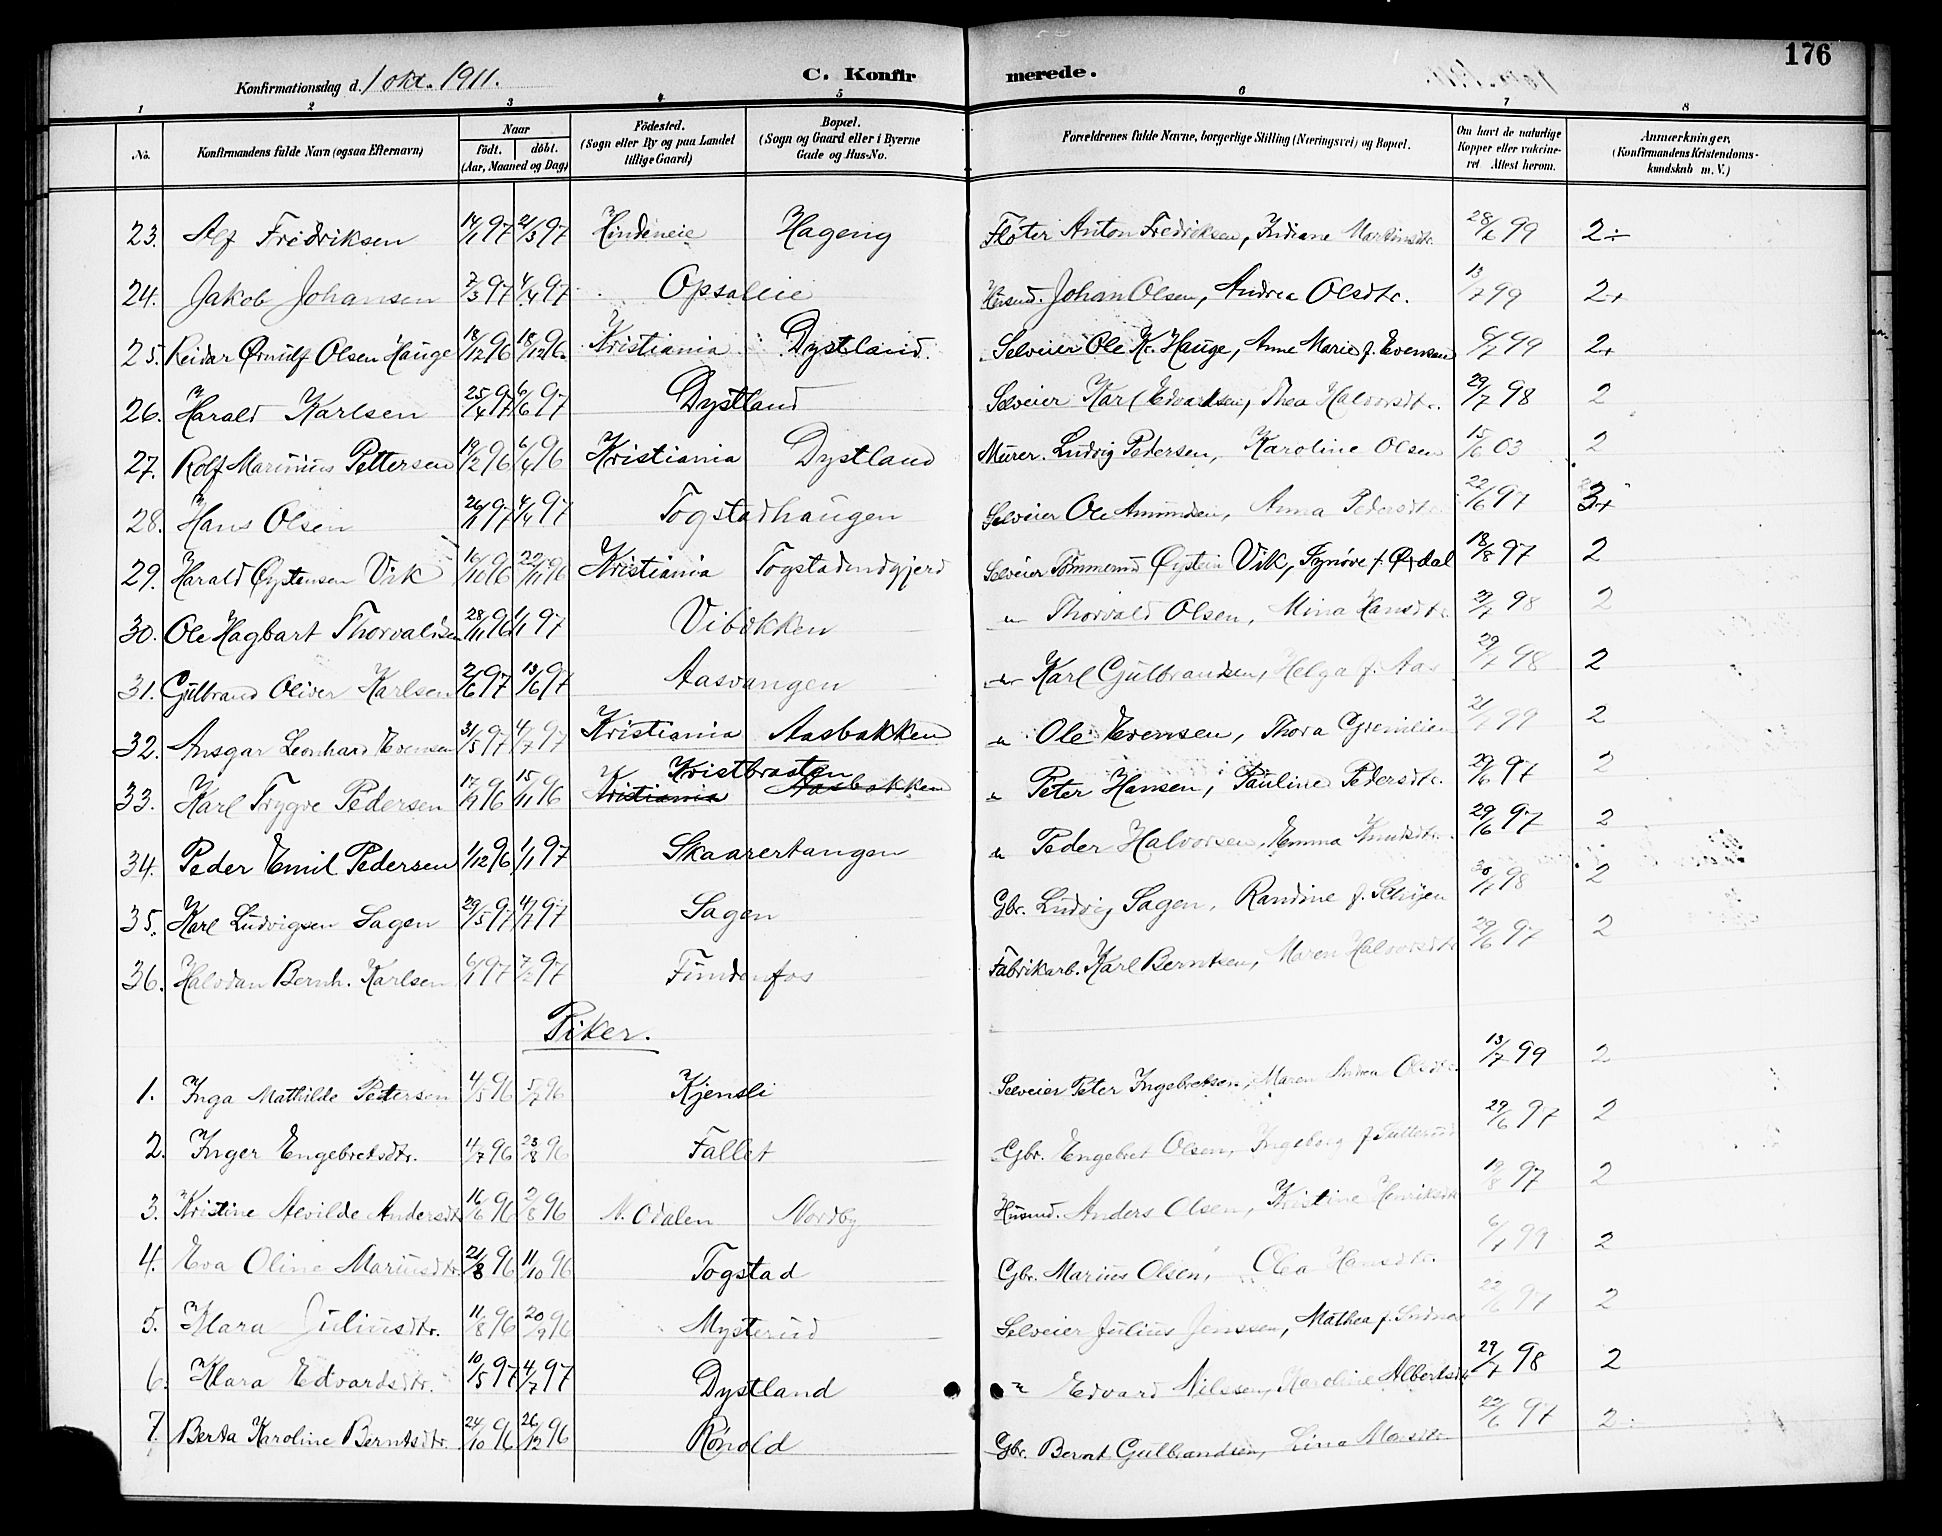 176
Konfirmationsdag d. 1 okt. 1911. C. Konfirmerede.
1 2 3 4 5 6 7 8
No. Konfirmandens fulde Navn (ogsaa Efternavn) Naar födt. döbt. (Aar, Maaned og Dag) Födested. (Sogn eller By og paa Landet tillige Gaard) Bopæl. (Sogn og Gaard eller i Byerne Gade og Hus-No. Forældrenes fulde Navne, borgerlige Stilling (Næringsvei) og Bopæl. Om havt de naturlige Kopper eller vakcineret Attest herom. Anmærkninger, (Konfirmandens Kristendomskundskab m. V.)
23. Alf Fredriksen 14/1 97 21/3 97 Hindeneie Hageng Fløter Anton Fredriksen, Indiane Martinsdtr. 28/6 99 2÷
24. Jakob Johansen 7/3 97 4/4 97 Opsaleie Husmd. Johan Olsen, Andrea Olsdtr. 13/7 99 2+
25. Reidar Ørnulf Olsen Hauge 18/12 96 18/12 96. Kristiania Dystland. Selveier Ole K. Hauge, Anne Marie f. Evensen 6/7 99 2+
26. Harald Karlsen 25/4 97 6/6 97 Dystland Selveier Karl Edvardsen, Thea Halvorsdtr. 29/7 98 2
27. Rolf Marinius Pettersen 19/2 96 6/4 96 Kristiania Dystland Murer. Ludvig Pedersen, Karoline Olsen 15/6 03 2
28. Hans Olsen 26/1 97 4/4 97 Togstadhaugen Selveier Ole Amundsen, Anna Pedersdtr. 22/6 97 3+
29. Harald Øystensen Vik 16/10 96 22/11 96 Kristiania Togstadødgjerd Selveier Tømmermd Øystein Vik, Synøve f. Ørdal 18/8 97 2
30. Ole Hagbart Thorvaldsen 28/11 96 1/1 97 Vibakken " Thorvald Olsen, Mina Hansdtr. 98 2
31. Gulbrand Oliver Karlsen 2/6 97 13/6 97 Aasvangen " Karl Gulbrandsen, Helga f. Aas 29/7 98 2
32. Ansgar Leonhard Evensen 31/5 97 4/7 97 Kristiania Aasbakken " Ole Evensen, Thora Grenilien 21/7 99 2
33. Karl Trygve Pedersen 17/9 96 15/11 96 Kristbraaten Kristiania Aasbakken " Peter Hansen, Pauline Pedersdtr. 29/6 97 2
34. Peder Emil Pedersen 1/12 96 1/1 97 Skaarertangen " Peder Halvorsen, Emma Knudsdtr. 29/6 97 2
35. Karl Ludvigsen Sagen 29/5 97 4/7 97 Sagen Gbr. Ludvig Sagen, Randine f. Schøyen 30/7 98 2
36. Halvdan Bernh. Karlsen 6/1 97 7/2 97 Fundenfos Fabrikarb. Karl Berntsen, Maren Halvorsdtr 29/6 97 2
Piker.
1. Inga Mathilde Petersen 4/5 96 5/7 96 Kjensli Selveier Peter Ingebretsen, Maren Andrea Olsdtr. 13/7 99 2
2. Inger Engebretsdtr. 11/7 96 23/8 96 Fallet Gbr. Engebret Olsen, Ingeborg f. Sætterud 29/6 97 2
3. Kristine Alvilde Andersdtr 16/6 96 2/8 96 N. Odalen Nordby Husmd. Anders Olsen, Kristine Henriksdtr 19/8 97 2
4. Eva Oline Mariusdtr. 21/8 96 11/10 96 Togstad Gbr. Marius Olsen, Olea Hansdtr. 6/7 99 2
5. Klara Juliusdtr. 11/8 96 20/9 96 Mysterud Selveier Julius Jenssen, Mathea f. 22/6 97 2
6. Klara Edvardsdtr. 10/5 97 4/7 97 Dystland " Edvard Nilssen, Karoline Albertsdtr 29/7 98 2
7. Berta Karoline Berntsdtr. 24/10 96 26/12 96 Rønold Gbr. Bernt Gulbrandsen, Lina Monsdtr 22/6 97 2